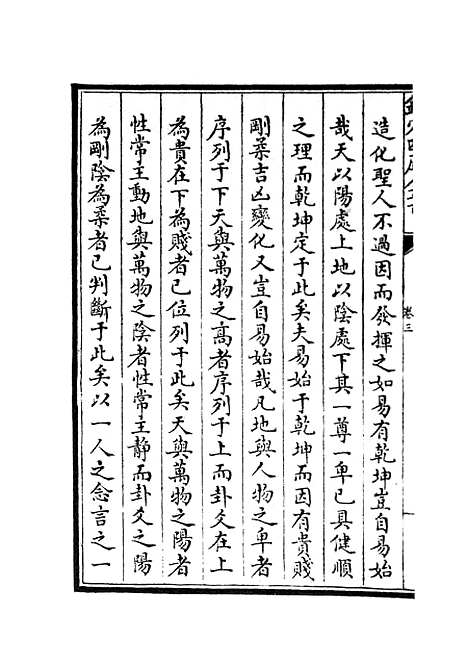 造化聖人不過因而發揮之如易有乾坤豈自易始
哉天以陽處上地以陰處下其一尊一卑已具健順
之理而乾坤定于此矣夫易始于乾坤而因有貴賤
剛柔吉凶變化又豈自易始哉凡地與人物之卑者
序列于下天與萬物之高者序列于上而卦爻在上
為貴在下為賤者已位列于此矣天與萬物之陽者
性常主動地與萬物之陰者性常主靜而卦爻之陽
為剛陰為柔者已判斷于此矣以一人之念言之一
卷三